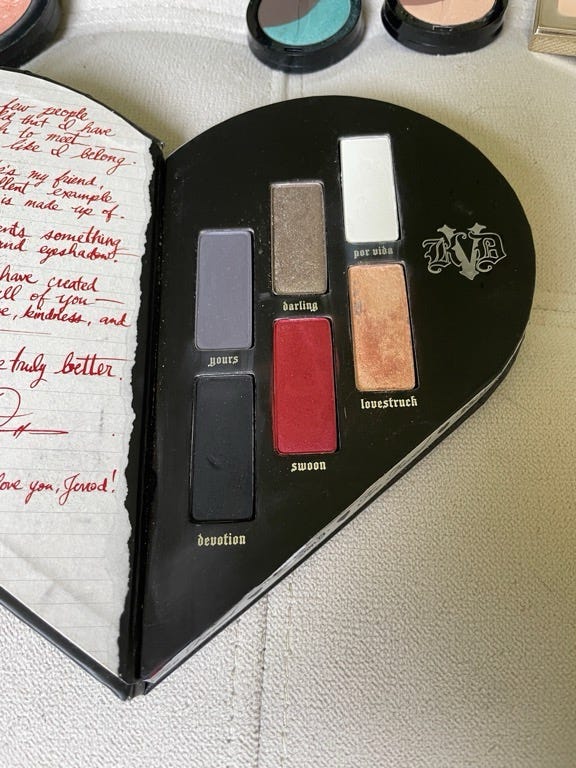 few people
that I have
to meet —
like I belong.
my friend,
example
is made up of.
something
eyeshadow.
have created
all of you —
kindness, and
truly better.
love you, Jerrod!
por vida
darling
yours
lovestruck
swoon
devotion
KVD